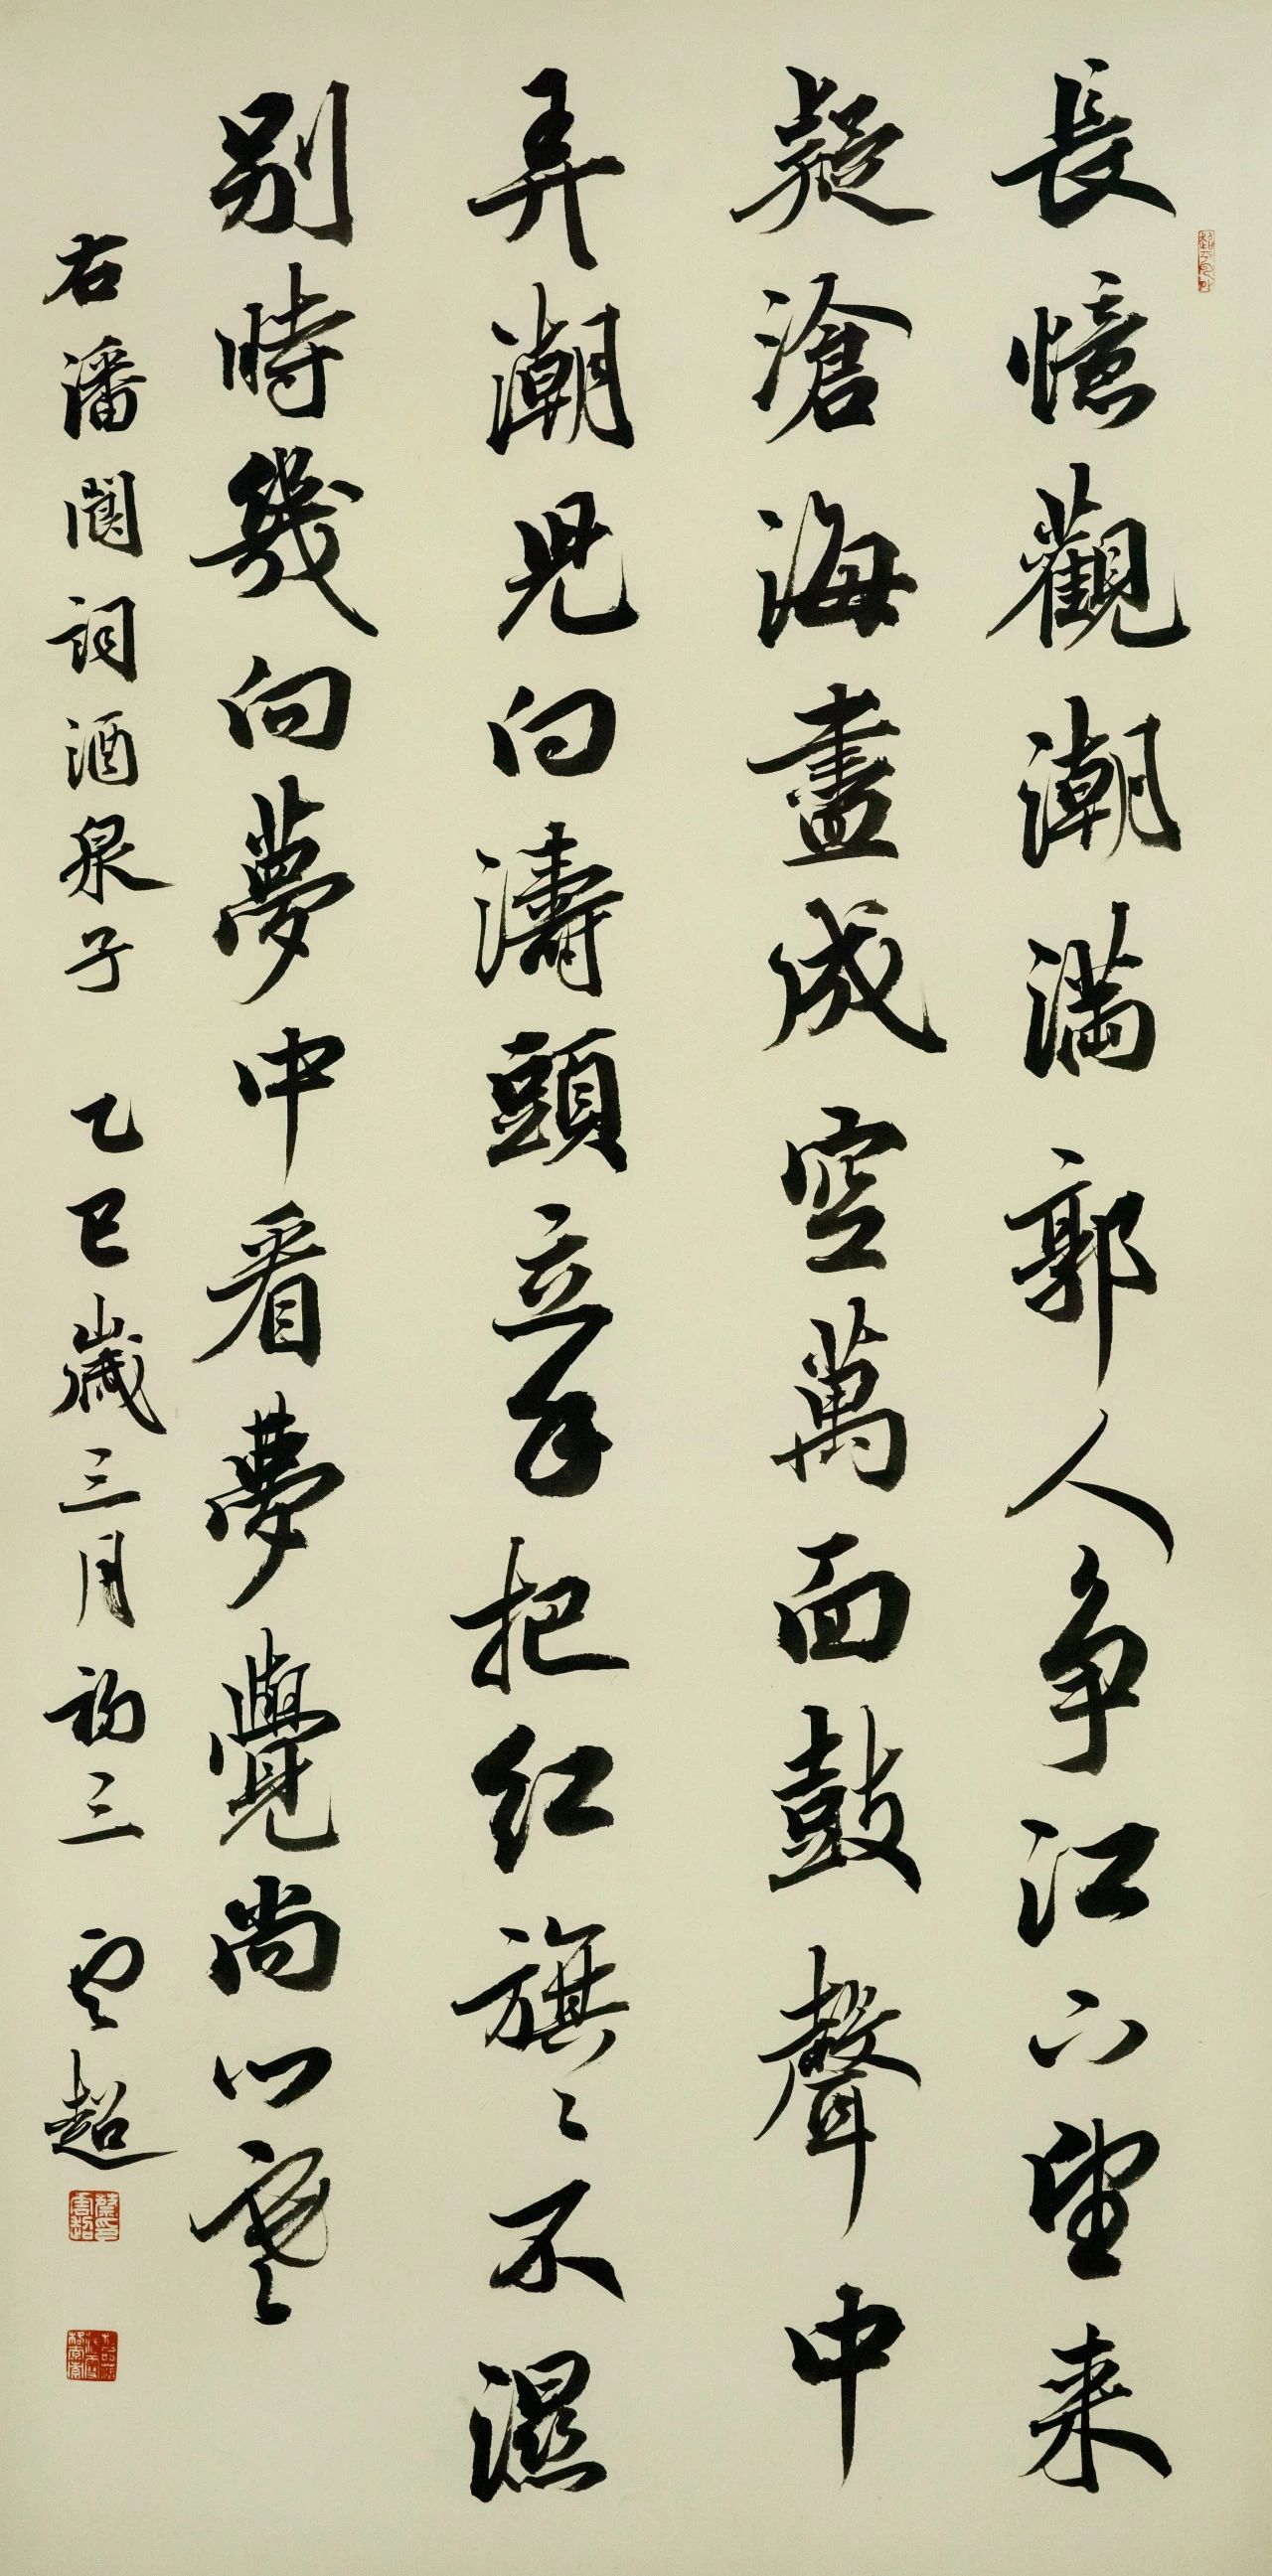 長憶觀潮滿郭人争江上望来
疑滄海盡成空萬面鼓聲中
弄潮兒向濤頭立手把红旗々不濕
别時幾向夢中看夢覺尚心寒
右潘閬词酒泉子 乙巳歲三月初三 雲超